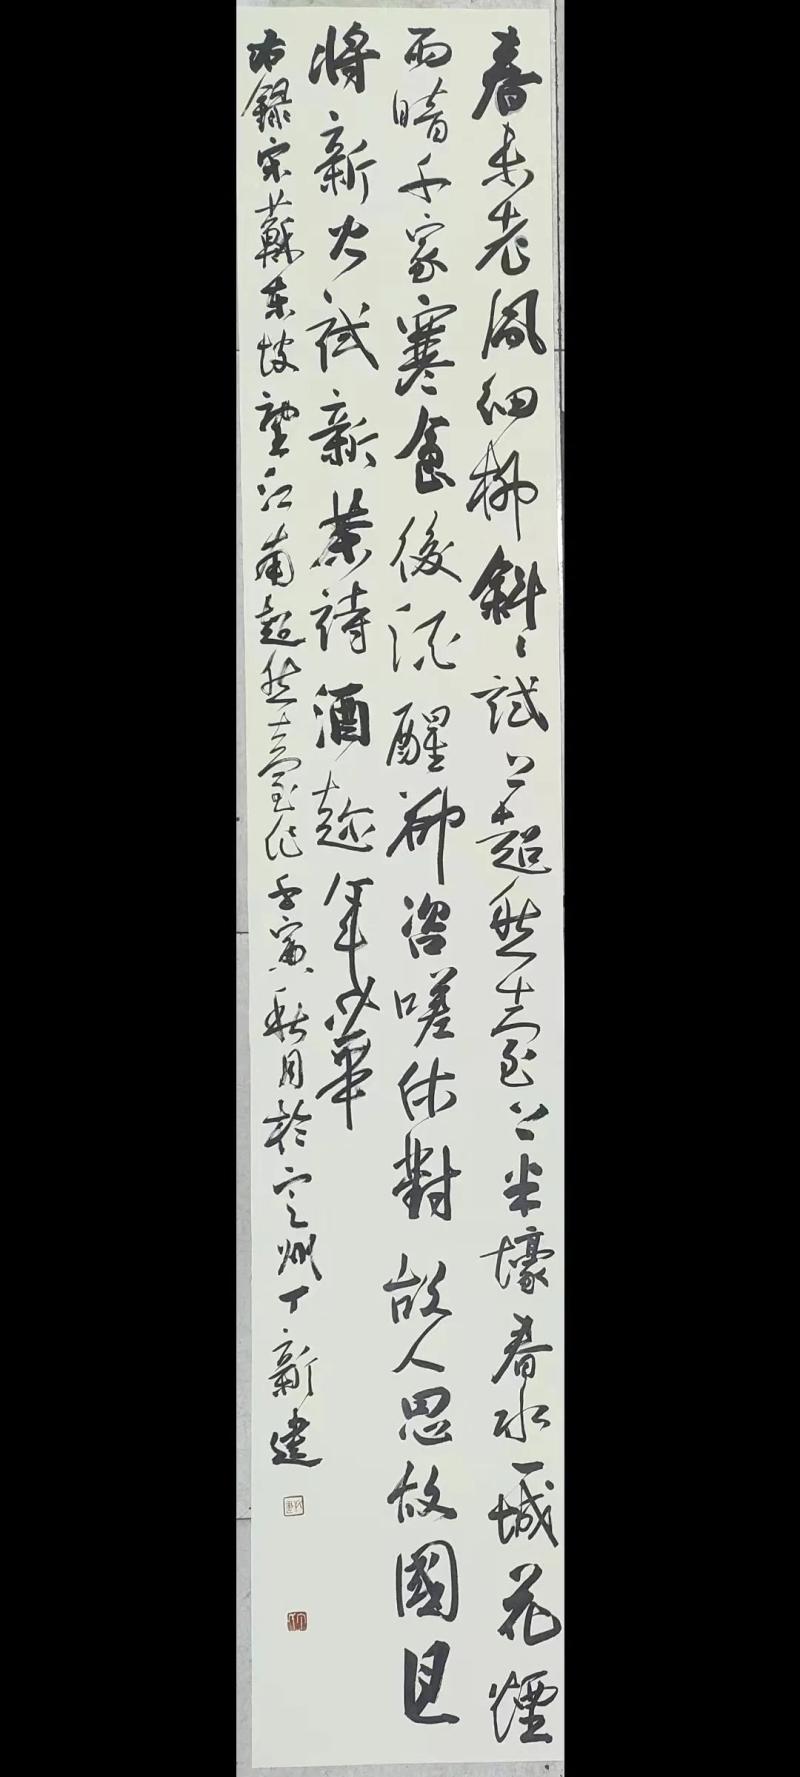 春未老風細柳斜斜試上超然臺上半壕春水一城花煙
雨暗千家寒食後酒醒却咨嗟休對故人思故國且
將新火試新茶詩酒趁年少華
右錄宋蘇東坡望江南超然臺作壬寅秋月於定州丁新建